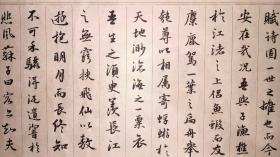 賦詩固一世之雄也而今
安在哉况吾與子漁樵
於江渚之上侶魚鰕而友
麋鹿駕一葉之扁舟舉
匏尊以相屬寄蜉蝣於
天地渺滄海之一粟哀
吾生之須臾羨長江
之無窮挾飛仙以敖
遊抱明月而長終知
不可乎驟得託遺響於
悲風蘇子曰客亦知夫